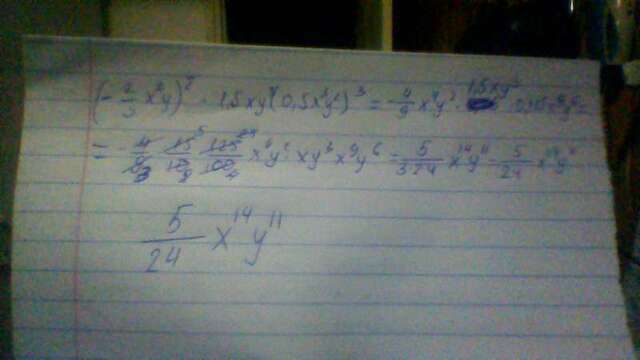 (-2/3 x²y)² · 1,5xy⁴(0,5x³y²)³ = 4/9 x⁴y² · 1,5xy³ · 0,125x⁹y⁶ =
= 4/9 15/10 125/100 x⁴y² · xy³ x⁹y⁶ = 5/3·24 x¹⁴y¹¹ = 5/24 x¹⁴y¹¹
5/24 x¹⁴y¹¹